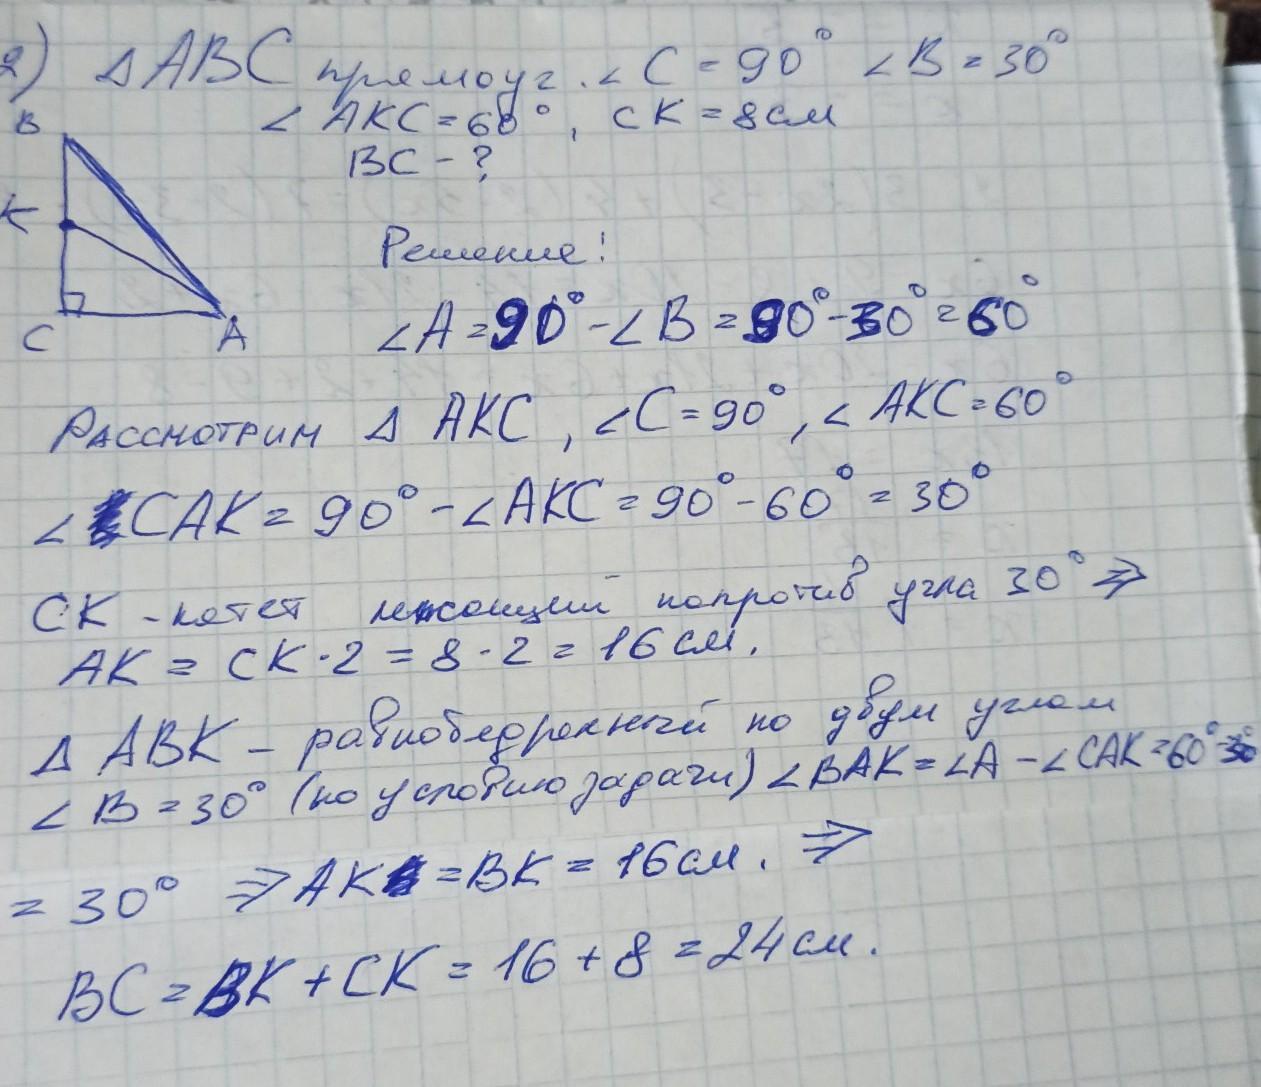 2) Δ ABC прямоуг. ∠C = 90° ∠B = 30°
∠ AKC = 60°, CK = 8 см
BC - ?
B
K
C
A
Решение:
∠A = 90° - ∠B = 90° - 30° = 60°
Рассмотрим Δ AKC, ∠C = 90°, ∠ AKC = 60°
∠ CAK = 90° - ∠AKC = 90° - 60° = 30°
CK - катет лежащий напротив угла 30° ⇒
AK = CK · 2 = 8 · 2 = 16 см.
Δ ABK - равнобедренный по двум углам
∠ B = 30° (по условию задачи) ∠BAK = ∠A - ∠CAK = 60° - 30°
= 30° ⇒ AK = BK = 16 см. ⇒
BC = BK + CK = 16 + 8 = 24 см.